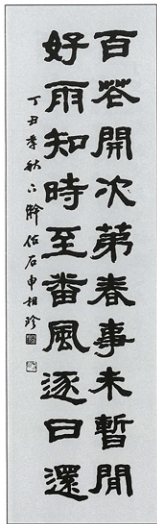 百花開次第春事未暫閒
好雨知時至番風逐日還
丁丑季秋下澣 石申相珍